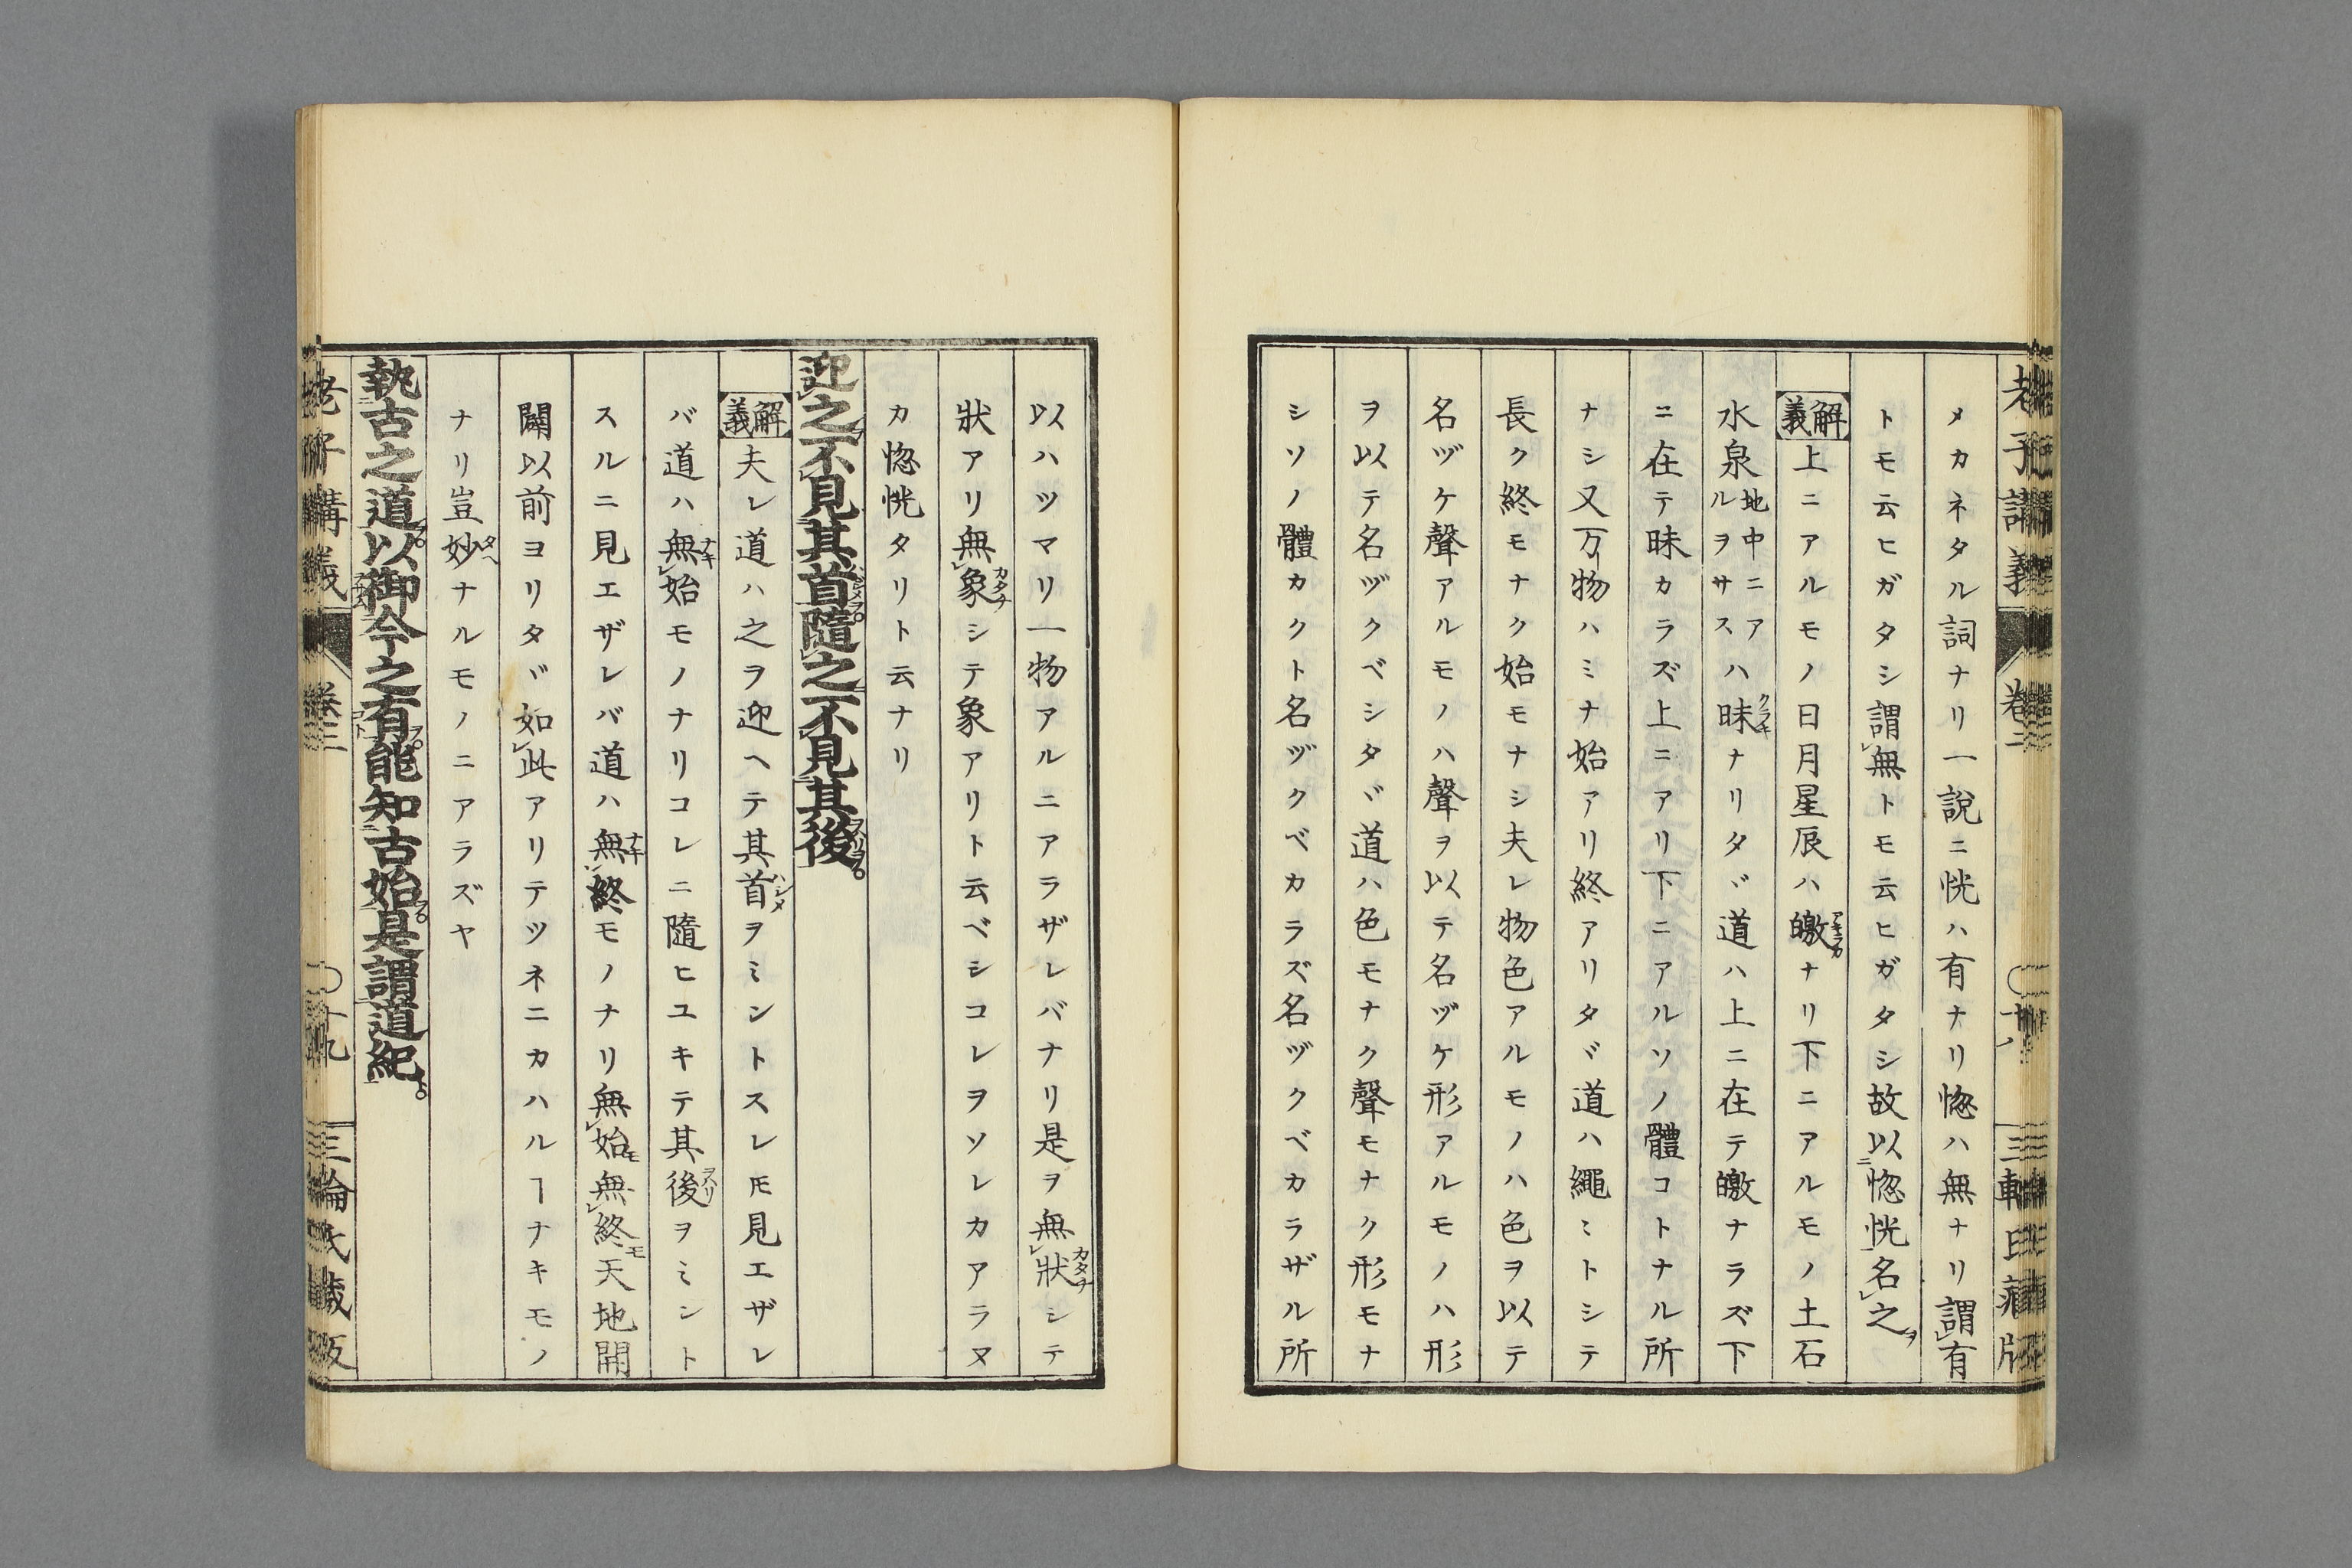 老子講義 卷二 〇十八 三輪氏藏版
メカネタル詞ナリ一說ニ恍ハ有ナリ惚ハ無ナリ謂㆑有
トモ云ヒガタシ謂㆑無トモ云ヒガタシ故以ニ惚恍名㆑之ヲ
解義 上ニアルモノ日月星辰ハ皦アキラカナリ下ニアルモノ土石
水泉地中ニアルヲサスハ昧クラキナリタヾ道ハ上ニ在テ皦ナラズ下
ニ在テ昧カラズ上ニアリ下ニアルソノ體コトナル所
ナシ又万物ハミナ始アリ終アリタヾ道ハ繩ミトシテ
長ク終モナク始モナシ夫レ物色アルモノハ色ヲ以テ
名ヅケ聲アルモノハ聲ヲ以テ名ヅケ形アルモノハ形
ヲ以テ名ヅクベシタヾ道ハ色モナク聲モナク形モナ
シソノ體カクト名ヅクベカラズ名ヅクベカラザル所
以ハツマリ一物アルニアラザレバナリ是ヲ無㆑狀カタチシテ
狀アリ無㆑象カタチシテ象アリト云ベシコレヲソレカアラヌ
カ惚恍タリト云ナリ
迎㆑之不㆑見其首隨㆑之不㆑見其後
解義 夫レ道ハ之ヲ迎ヘテ其首ハジメヲミントスレ𪜈見エザレ
バ道ハ無ナキ㆑始モノナリコレニ隨ヒユキテ其後ヲハリヲミント
スルニ見エザレバ道ハ無ナキ㆑終モノナリ無㆑始モ無㆑終モ天地開
闢以前ヨリタヾ如㆑此アリテツネニカハルヿナキモノ
ナリ豈妙タヘナルモノニアラズヤ
執古之道以御今之有能知古始是謂道紀
老子講義 卷二 〇十九 三輪氏藏版